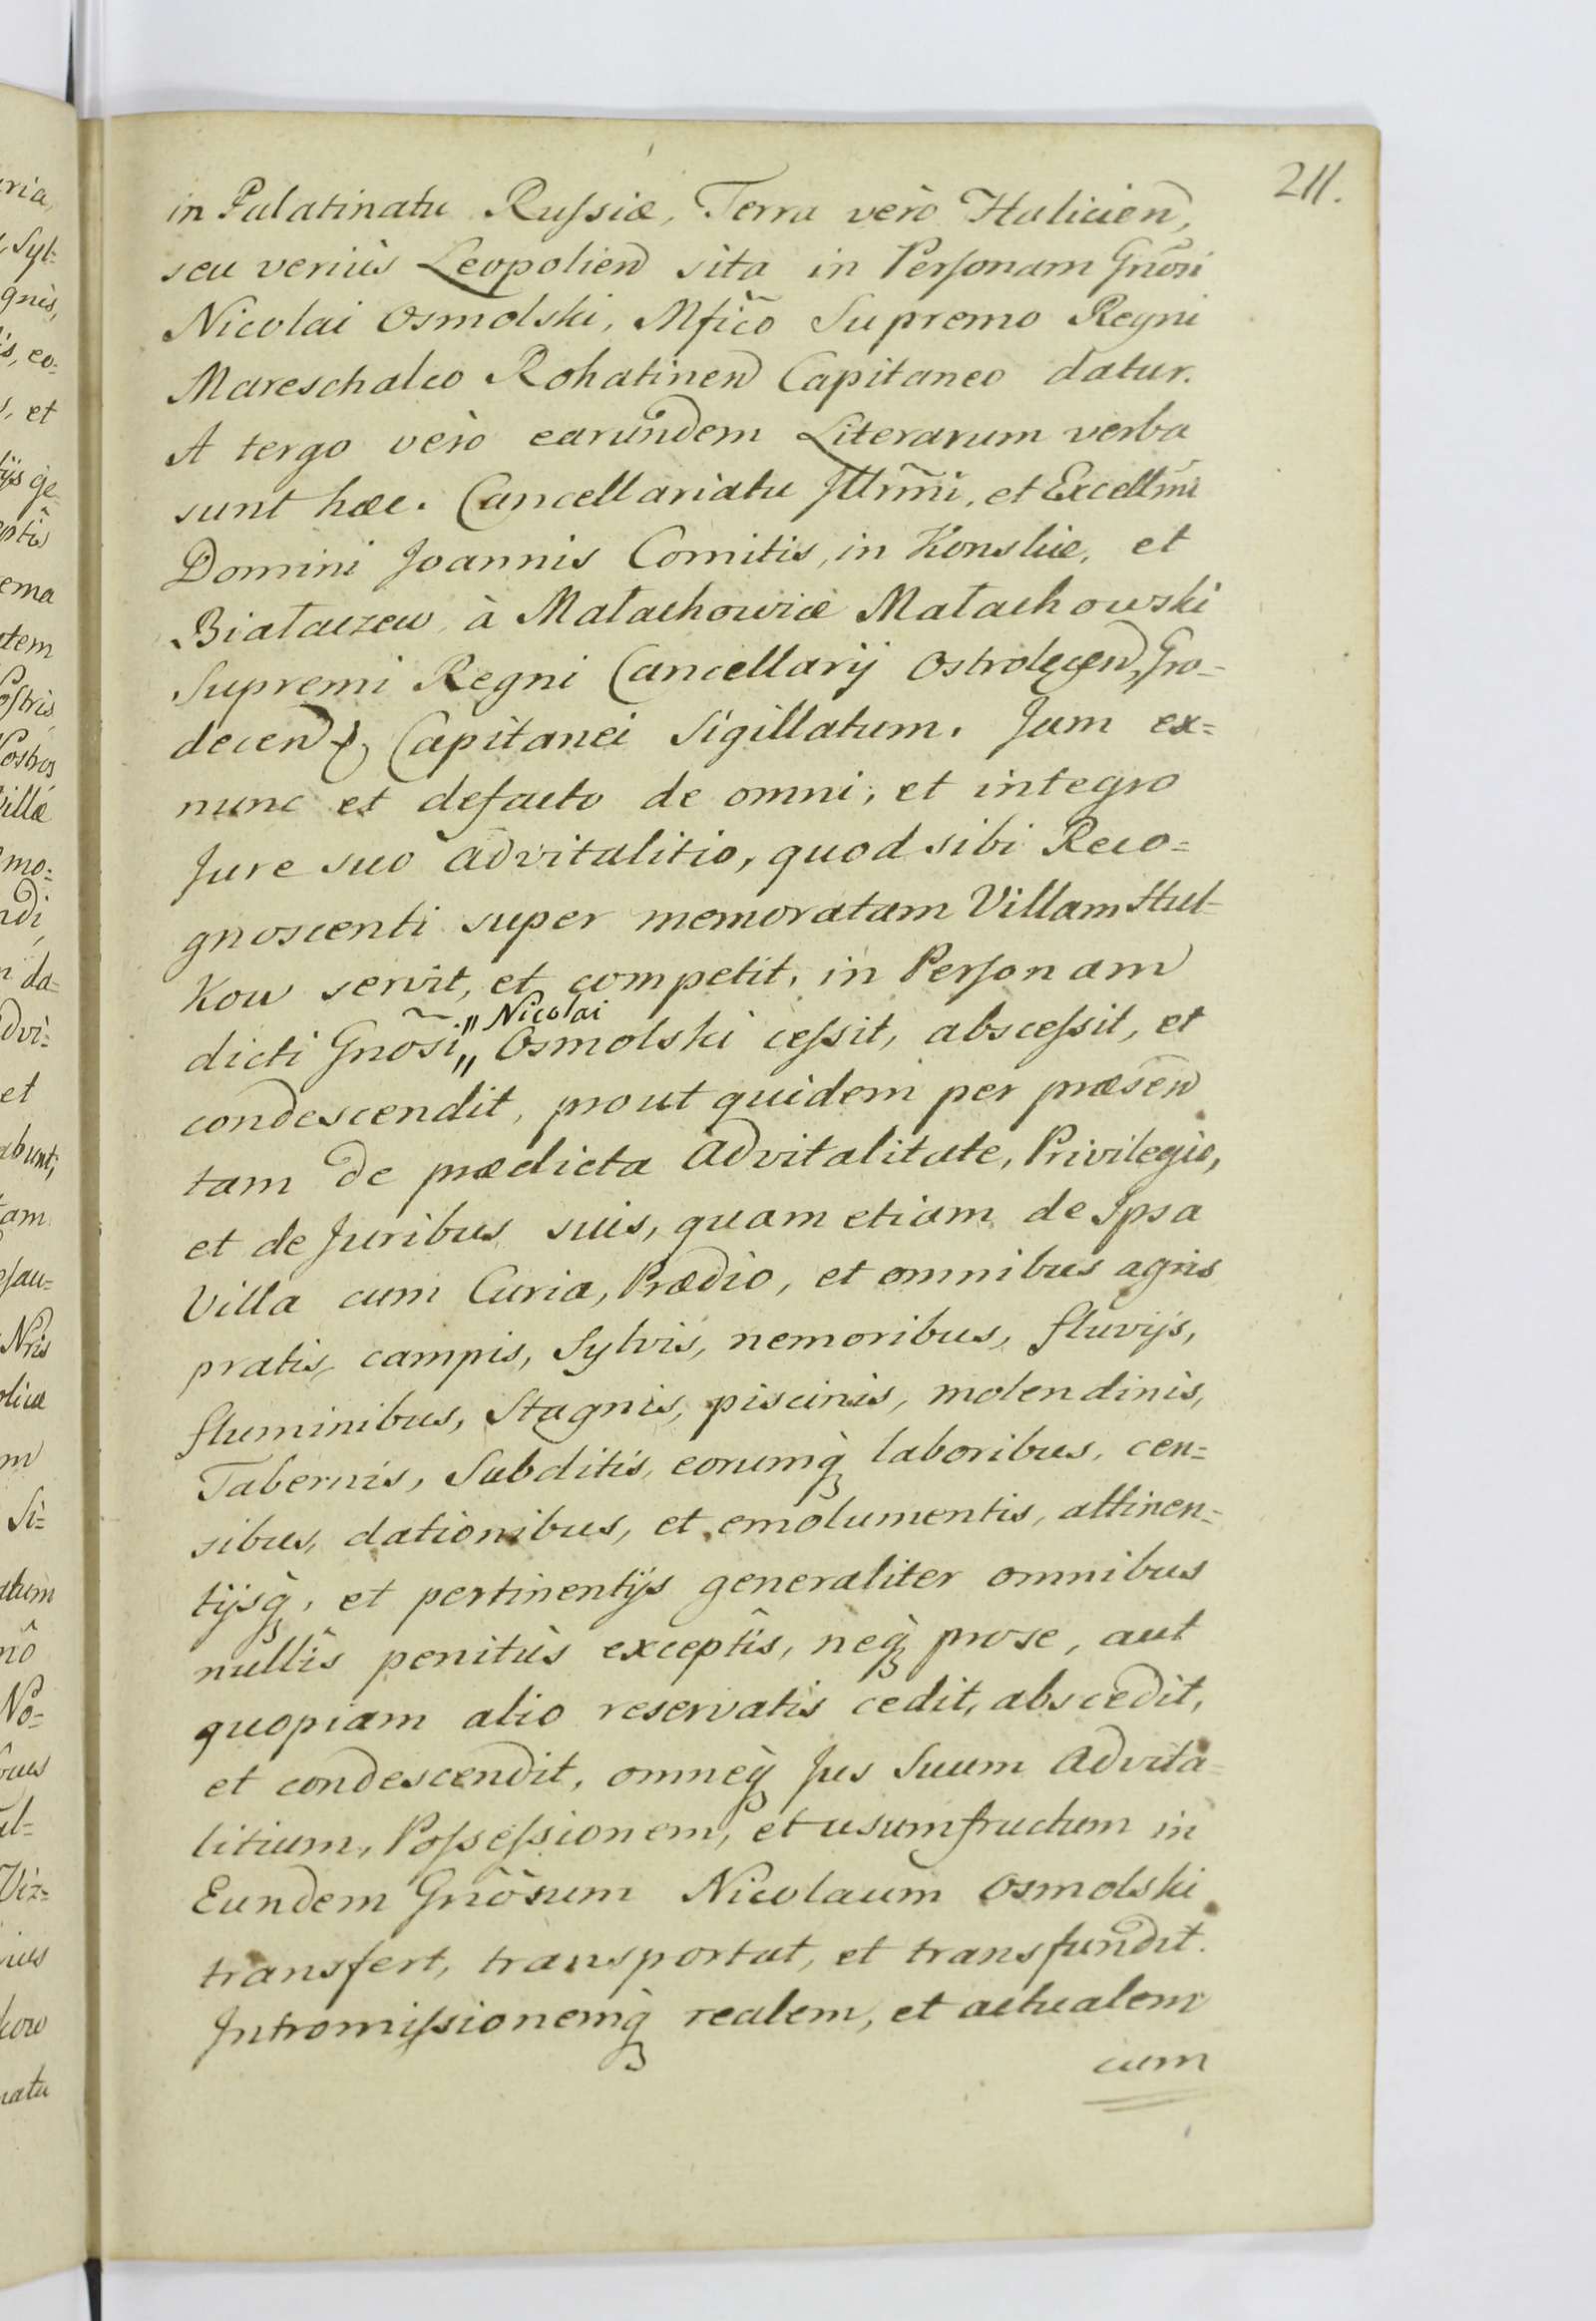 211.
in Palatinatu Rufsiæ, Terra verò Halicien,
seu veriùs Leopolien sita in Personam Gnõsi
Nicolai Osmolski, Mficõ Supremo Regni
Mareschalco Rohatinen Capitaneo datur.
A tergo vèro earundem Literarum verba
sunt hæc. Cancellariatu Jllrmĩ, et Excellmĩ
Domini Joannis Comitis, in Konskie, et
Białaczew, à Małachowice Małachowski
Supremi Regni Cancellarij Ostrolęcen, Gro-
decen & Capitanei Sigillatum. Jam ex=
nunc et defacto de omni, et integro
Jure suo advitalitio, quod sibi Reco=
gnoscenti super memoratam Villam Stul-
kow servit, et competit, in Personam
dicti Gnõsi „ Nicolai „ Osmolski cefsit, abscefsit, et
condescendit, prout quidem per præsen
tam de prædicta advitalitate, Privilegio,
et de Juribus suis, quam etiam de Ipsa
Villa cum Curia, Prædio, et omnibus agris
pratis, campis, Sylvis, nemoribus, fluvijs,
fluminibus, Stagnis, piscinis, molendinis,
Tabernis, Subditis, eorumq̀ laboribus, cen=
sibus, dationibus, et emolumentis, attinen=
tijsq̀, et pertinentijs generaliter omnibus
nullîs penitùs exceptîs, neq̀ prose, aut
quopiam alio reservatis cedit, abscedit,
et condescendit, omneq̀ Jus Suum advita=
litium, Pofsefsionem, et usumfructum in
Eundem Gnõsum Nicolaum Osmolski
transfert, transportat, et transfundit.
Intromifsionemq̀ realem, et actualem
cum